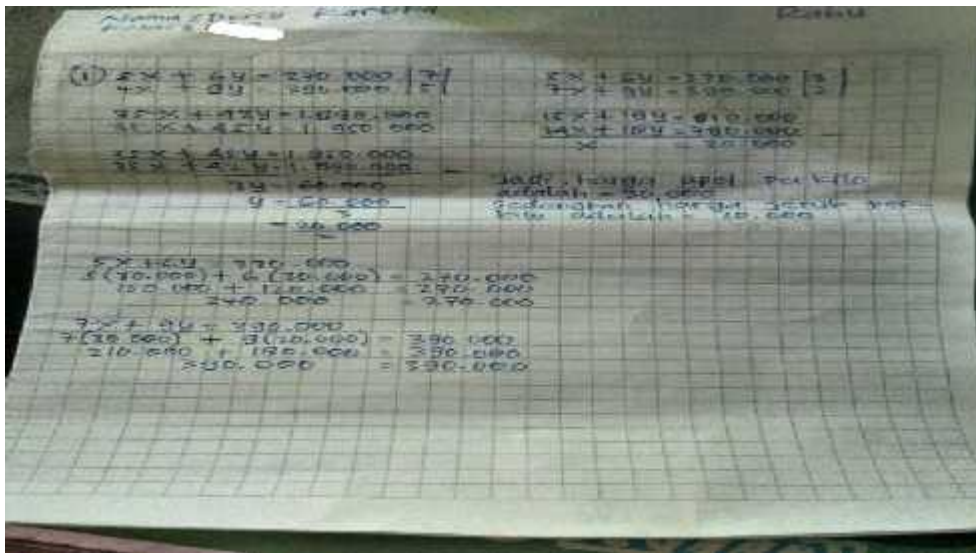 Nama :
(1) 5x + 6y = 270.000 | 7 |
7x + 9y = 390.000 | 5 |
35x + 42y = 1.890.000
35x + 45y = 1.950.000
35x + 45y = 1.950.000
35x + 42y = 1.890.000 -
3y = 60.000
y = 60.000
3
= 20.000
5x + 6y = 270.000
5(30.000) + 6(20.000) = 270.000
150.000 + 120.000 = 270.000
270.000 = 270.000
7x + 9y = 390.000
7(30.000) + 9(20.000) = 390.000
210.000 + 180.000 = 390.000
390.000 = 390.000
5x + 6y = 270.000 | 3 |
7x + 9y = 390.000 | 2 |
15x + 18y = 810.000
14x + 18y = 780.000 -
x = 30.000
Jadi, harga apel perkilo
adalah = 30.000
Sedangkan harga jeruk per-
kilo adalah = 20.000